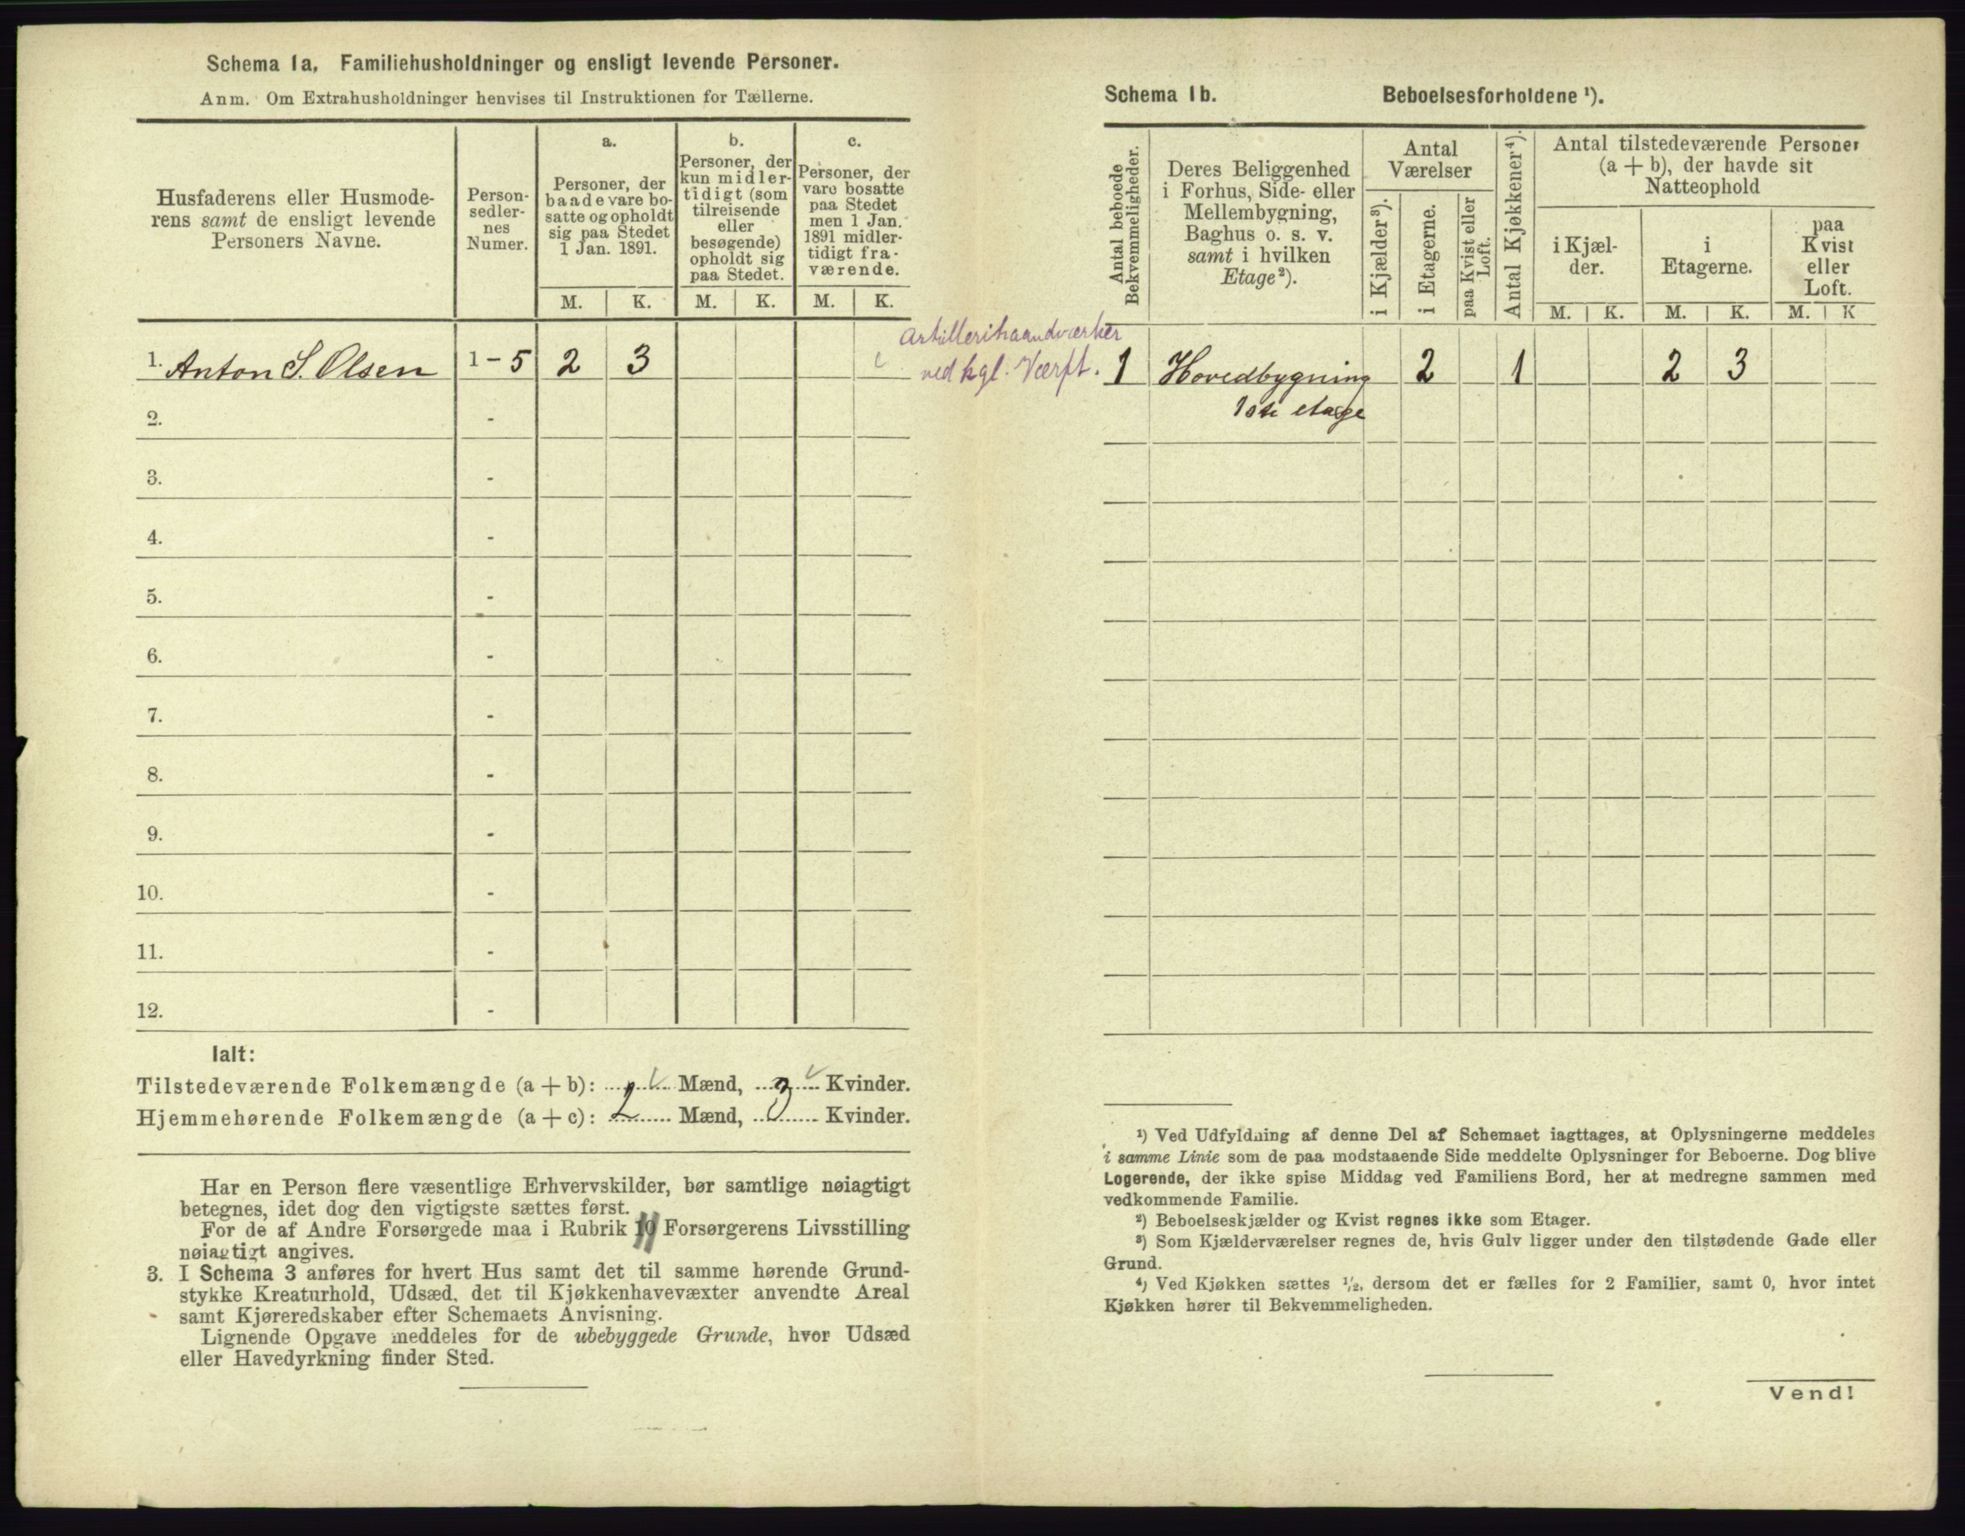 Schema 1a, Familiehusholdninger og ensligt levende Personer.
Anm. Om Extrahusholdninger henvises til Instruktionen for Tællerne.
Husfaderens eller Husmode-
rens samt de ensligt levende
Personers Navne.
Person-
sedler-
nes
Numer.
a.
Personer, der
baade vare bo-
satte og opholdt
sig paa Stedet
1 Jan. 1891.
b.
Personer, der
kun midler-
tidigt (som
tilreisende
eller
besøgende)
opholdt sig
paa Stedet.
c.
Personer, der
vare bosatte
paa Stedet
men 1 Jan.
1891 midler-
tidigt fra-
værende.
M. K. M. K. M. K.
1. Anton S. Olsen 1-5 2 3
2. -
3. -
4. -
5. -
6. -
7. -
8. -
9. -
10. -
11. -
12. -
Ialt:
Tilstedeværende Folkemængde (a + b): 2 Mænd, 3 Kvinder.
Hjemmehørende Folkemængde (a + c): 2 Mænd, 3 Kvinder.
Har en Person flere væsentlige Erhvervskilder, bør samtlige nøiagtigt
betegnes, idet dog den vigtigste sættes først.
For de af Andre Forsørgede maa i Rubrik 11 Forsørgerens Livsstilling
nøiagtigt angives.
3. I Schema 3 anføres for hvert Hus samt det til samme hørende Grund-
stykke Kreaturhold, Udsæd, det til Kjøkkenhavevæxter anvendte Areal
samt Kjøreredskaber efter Schemaets Anvisning.
Lignende Opgave meddeles for de ubebyggede Grunde, hvor Udsæd
eller Havedyrkning finder Sted.
Schema 1b. Beboelsesforholdene ¹).
Antal beboede
Bekvemmeligheder.
Deres Beliggenhed
i Forhus, Side- eller
Mellembygning,
Baghus o. s. v.
samt i hvilken
Etage²).
Antal
Værelser
i Kjælder³).
i Etagerne.
paa Kvist eller
Loft.
Antal Kjøkkener⁴).
Antal tilstedeværende Personer
(a + b), der havde sit
Natteophold
i Kjæl-
der.
i
Etagerne.
paa
Kvist
eller
Loft.
M. K. M. K. M. K
Artillerihaandværker
ved kgl. Værft.
1 Hovedbygning 2 1 2 3
1ste etage
¹) Ved Udfyldning af denne Del af Schemaet iagttages, at Oplysningerne meddeles
i samme Linie som de paa modstaaende Side meddelte Oplysninger for Beboerne. Dog blive
Logerende, der ikke spise Middag ved Familiens Bord, her at medregne sammen med
vedkommende Familie.
²) Beboelseskjælder og Kvist regnes ikke som Etager.
³) Som Kjælderværelser regnes de, hvis Gulv ligger under den tilstødende Gade eller
Grund.
⁴) Ved Kjøkken sættes ½, dersom det er fælles for 2 Familier, samt 0, hvor intet
Kjøkken hører til Bekvemmeligheden.
Vend!